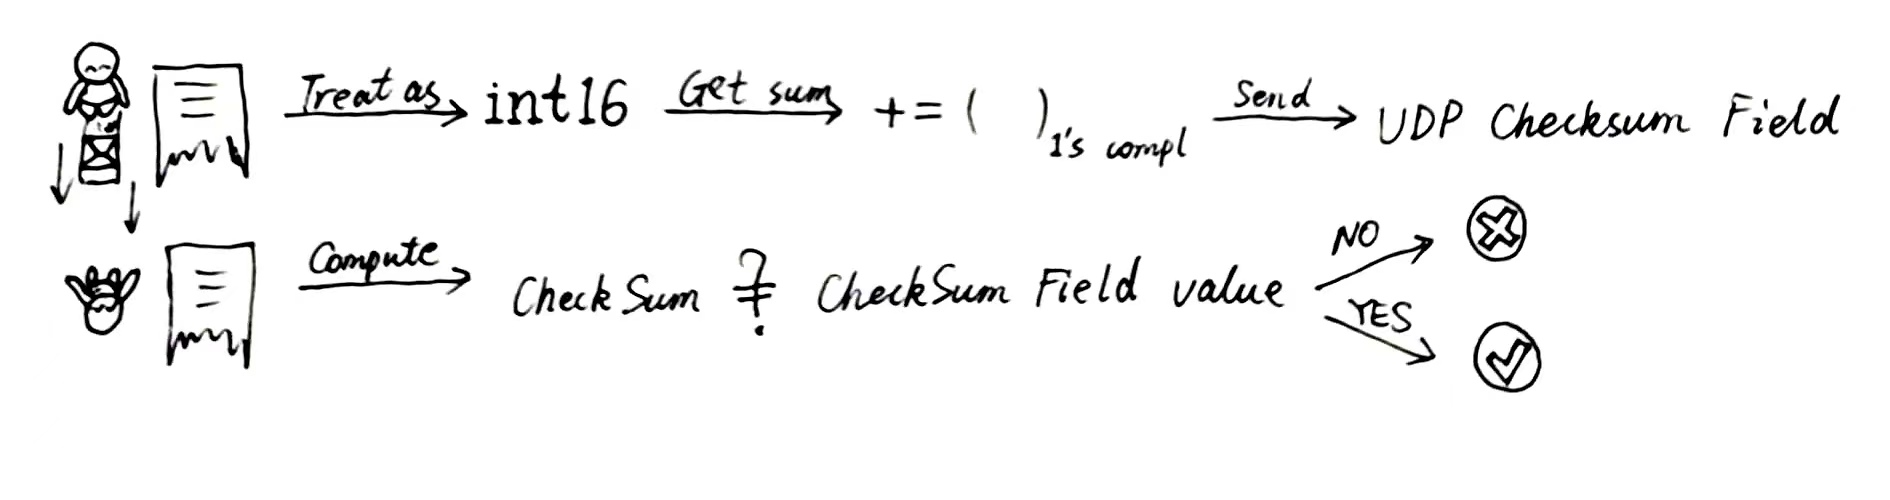 Treat as int16 Get sum += ( )1's compl Send UDP Checksum Field
Compute CheckSum =? CheckSum Field value
NO
YES